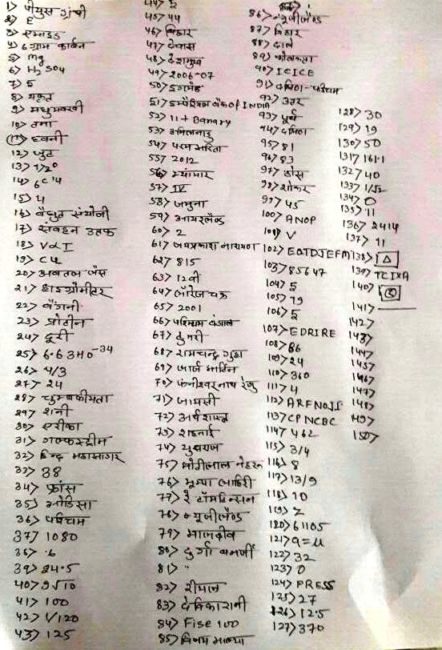 1> पीयुस ग्रंथी
2> E
3> एमाइड
4> 6 ग्राम कार्बन
5> mg
6> H2SO4
7> S
8> यकृत
9> मधुमक्खी
10> तना
11> ध्वनी
12> जूट
13> 1/20
14> 6C14
15> 4
16> वैद्युत संयोजी
17> संवहन
18> V∝I
19> C4
20> अवतल लेंस
21> हाइग्रोमीटर
22> बैंगनी
23> प्रोटीन
24> दूरी
25> 6.63×10-34
26> 4/3
27> 24
28> चुम्बकीयता
29> शनी
30> अफ्रीका
31> गल्फस्ट्रीम
32> हिन्द महासागर
33> 38
34> फ्रांस
35> ओडिसा
36> पश्चिम
37> 1080
36> .6
39> 24.5
40> 9√10
41> 100
42> 1/120
43> 125
44> 2
45> 44
46> बिहार
47> देवास
48> देशमुख
49> 2006-07
50> इंग्लैंड
51> इम्पीरियल Bank of INDIA
52> 11 + Banary
53> तमिलनाडु
54> परम
55> 2012
56> म्यांमार
57> IV
58> जमुना
59> आयरलैंड
60> 2
61> जयप्रकाश नारायण
62> 815
63> 12वी
64> अशोक चक्र
65> 2001
66> पश्चिम बंगाल
67> ठुमरी
68> रामचन्द्र गुहा
69> जार्ज मार्टिन
70> फनीश्वर नाथ रेणु
71> जायसी
72> अर्थशास्त्र
73> शहनाई
74> युवराज
75> मोतीलाल नेहरू
76> झुम्पा लाहिरी
77> रे टॉमलिन्सन
78> न्यूजीलैंड
79> मालदीव
80> दुर्गा बनर्जी
81> "
82> शीपान
83> देविकारानी
84> Fise 100
85> विजय माल्या
86> न्यूजीलैंड
87> बिहार
88>
89> कोलकाता
90> ICICE
91> दक्षिण-पश्चिम
92> उत्तर
93> पूर्व
94> दक्षिण
95> 81
96> 83
97> ठोस
98>
99> 45
100> ANOP
101> V
102> EOTDJEFM
103> 85647
104> 5
105> 19
106> 5
107> EDRIRE
108> 86
109> 24
110> 360
111> 4
112> ARFNOJS
113> CPNCBC
114> 462
115> 3/4
116> 8
117> 13/9
118> 10
119> 2
120> 6105
121> 9=4
122> 32
123> 0
124> PRESS
125> 27
126> 12.5
127> 370
128> 30
129> 19
130> 50
131> 1611
132> 40
133> 1/5
134> 0
135> 11
136> 2414
137> 11
138> △
139> TCIXA
140>
141>
142>
143>
144>
145>
146>
147>
148>
149>
150>